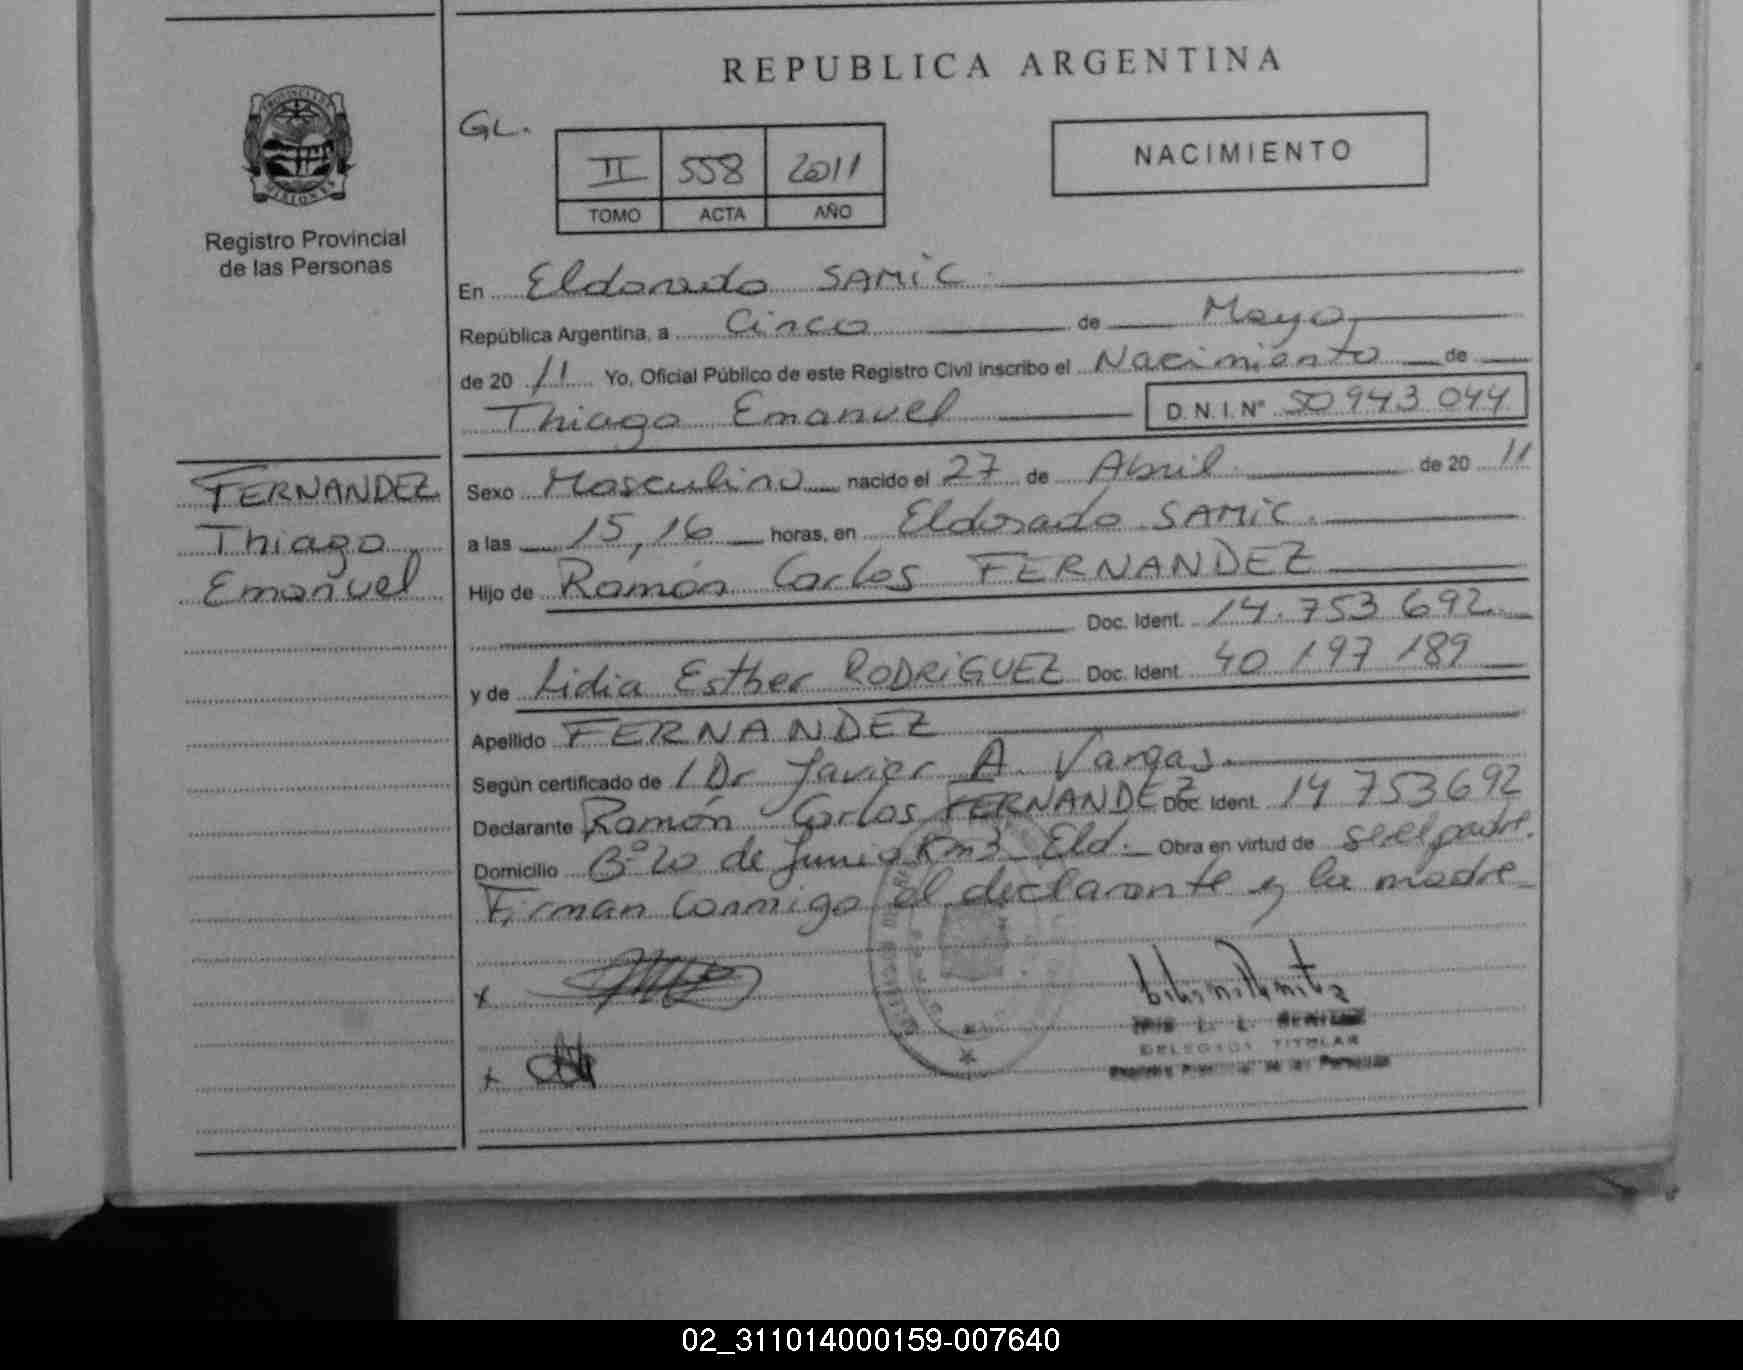 REPUBLICA ARGENTINA
PROVINCIA DE MISIONES
Registro Provincial
de las Personas
GL.
NACIMIENTO
II 558 2011
TOMO ACTA AÑO
En Eldorado SAMIC
República Argentina, a Cinco de Mayo
de 20 11 Yo, Oficial Público de este Registro Civil inscribo el Nacimiento de
Thiago Emanuel D.N.I.N° 50 943 044
FERNANDEZ
Thiago
Emanuel
Sexo Masculino nacido el 27 de Abril de 20 11
a las 15,16 horas, en Eldorado SAMIC.
Hijo de Ramón Carlos FERNANDEZ
Doc. Ident. 14.753 692
y de Lidia Esther RODRIGUEZ Doc. Ident. 40 197 189
Apellido FERNANDEZ
Según certificado de Dr Javier A. Vargas
Declarante Ramón Carlos FERNANDEZ Doc. Ident. 14 753692
Domicilio B° 20 de Junio Km3 Eld. Obra en virtud de ser el padre.
Firman conmigo el declarante y la madre
x
x
DELEGADA TITULAR
Registro Provincial de las Personas
02_311014000159-007640